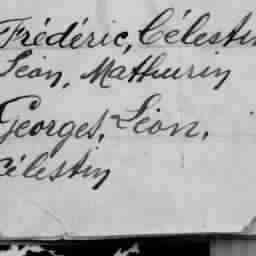 Frédéric, Célestin
Léon, Mathurin
Georges, Léon,
Célestin